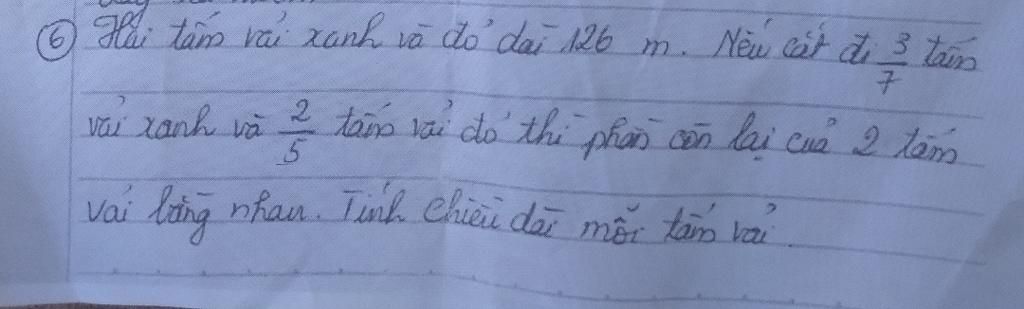 ⑥ Hai tấm vải xanh và đỏ dài 126 m. Nếu cắt đi 3/7 tấm
vải xanh và 2/5 tấm vải đỏ thì phần còn lại của 2 tấm
vải bằng nhau. Tính chiều dài mỗi tấm vải.